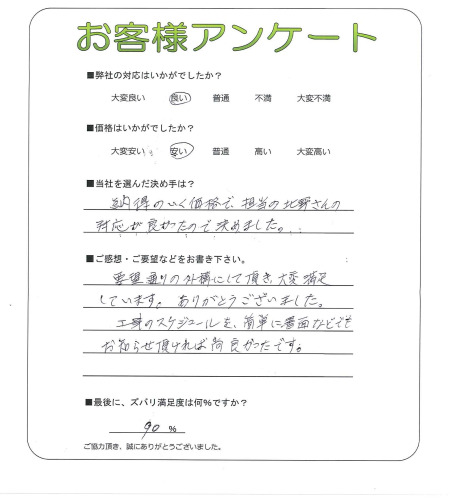 お客様アンケート
■弊社の対応はいかがでしたか？
大変良い 良い 普通 不満 大変不満
■価格はいかがでしたか？
大変安い 安い 普通 高い 大変高い
■当社を選んだ決め手は？
納得のいく価格で、担当の北野さんの
対応が良かったので決めました。
■ご感想・ご要望などをお書き下さい。
要望通りの外構にして頂き、大変満足
しています。ありがとうございました。
工事のスケジュールを、簡単に書面などでも
お知らせ頂ければ尚良かったです。
■最後に、ズバリ満足度は何%ですか？
90 %
ご協力頂き、誠にありがとうございました。